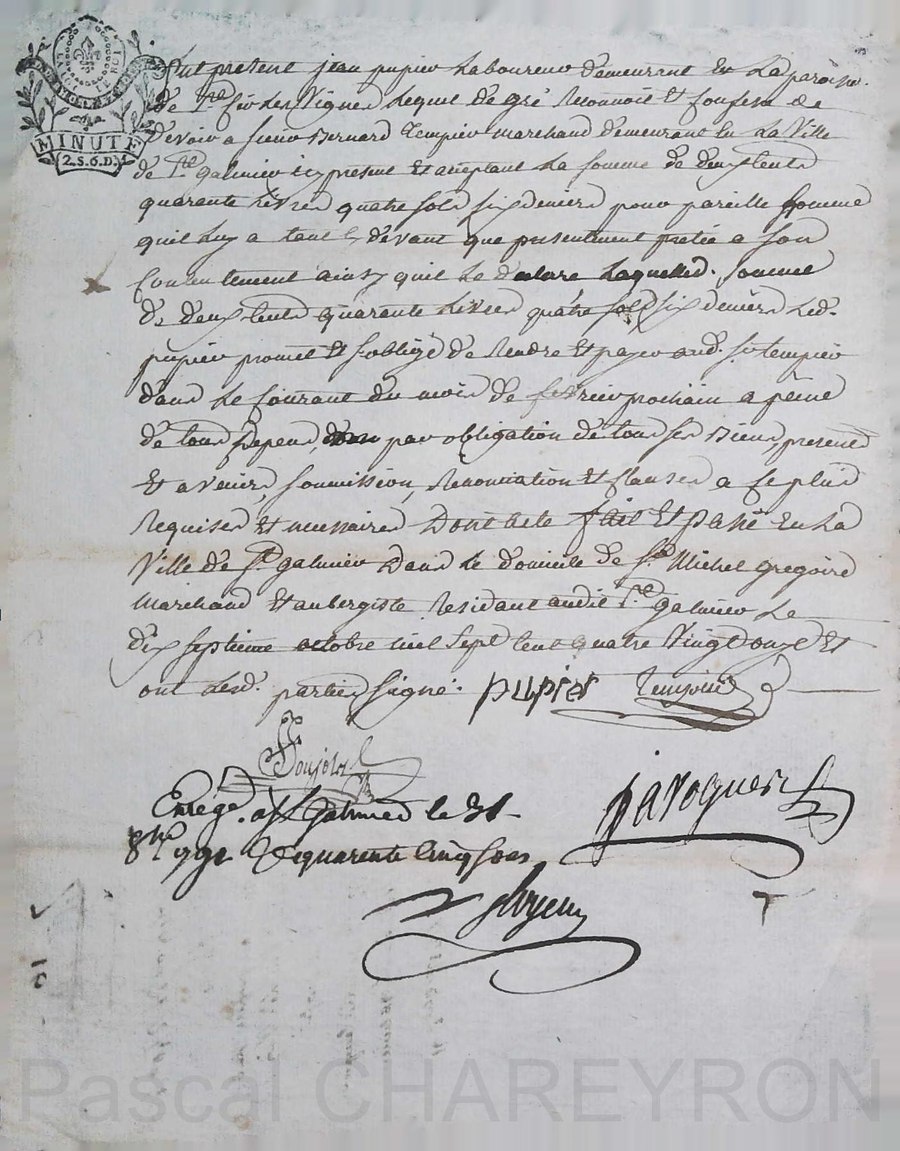 LA LOI LE ROI
MINUTE
2.S.6.D.
fut present jean pupier Laboureur demeurant En La paroisse
de St Cir les Vignes Lequel de gré Reconnoit Et Confesse de
devoir a sieur Bernard tempier Marchand demeurant En La Ville
de St galmier icy present Et acceptant La somme de deux Cents
quarante Livres quatre sols six deniers pour pareille somme
quil Luy a tant cy devant que presentement pretée a son
Contentement ainsy quil Le declare Laquelle. somme
de deux Cents quarante Livres quatre sols six deniers Led.
pupier promet Et soblige de Rendre Et payer aud. sr tempier
dans Le Courant du mois de fevrier prochain a peine
de tous depens, par obligation de tous ses Biens, presents
Et a venir, soumission, Renonciation Et Clauses a ce plus
Requises Et necessaires Dont acte fait Et passé En La
Ville de St galmier Dans Le domicile de Sr Michel gregoire
Marchand Et aubergiste Residant audit St galmier Le
dix septieme octobre mil sept Cent quatre Vingt onze Et
ont Lesd. parties signé. pupier Tempier
Poujols
javoguer
Enregé. a St Galmier le 31
8bre 1791 Reçu quarente Cinq sous
Pascal CHAREYRON